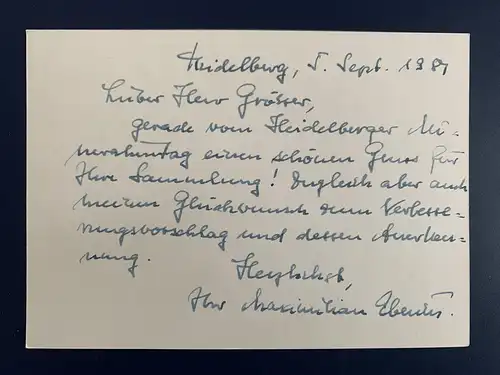 Heidelberg, 5. Sept. 1981
Lieber Herr Grösser,
gerade vom Heidelberger Mi-
neralientag einen schönen Gruss für
Ihre Sammlung! Zugleich aber auch
meinen Glückwunsch zum Verbesse-
rungsvorschlag und dessen Anerken-
nung.
Herzlichst,
Ihr Maximilian